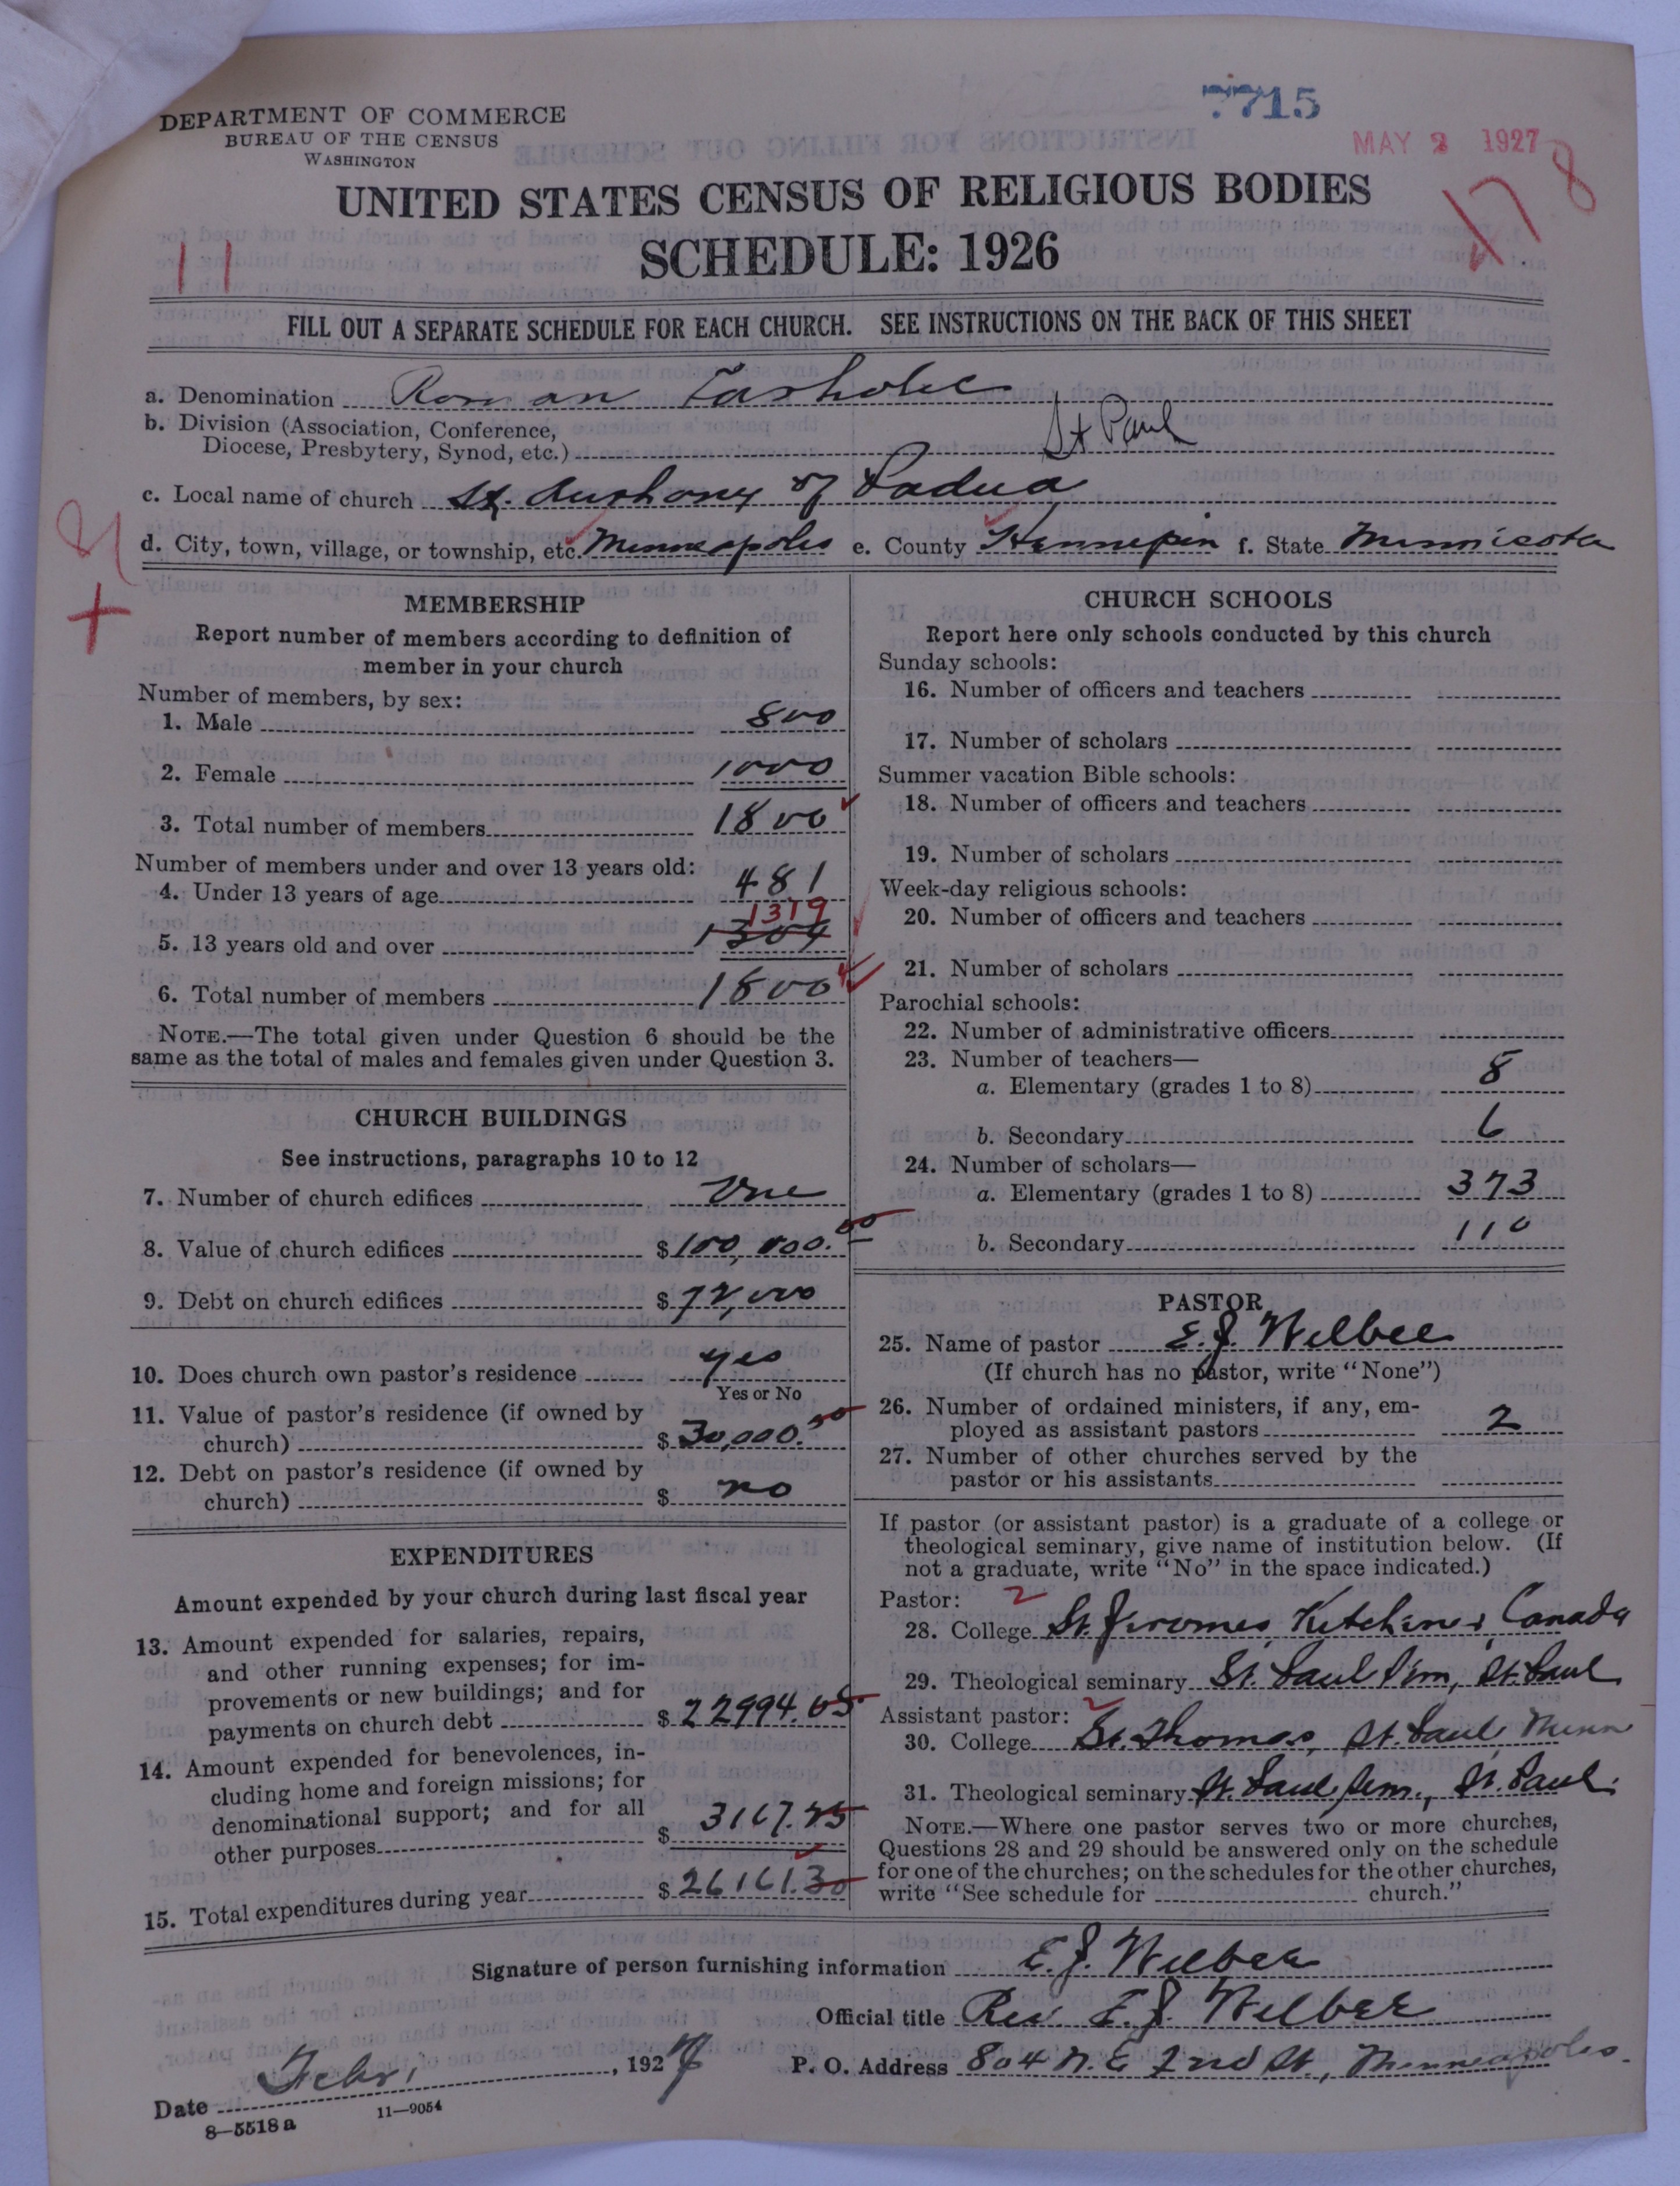 7715
MAY 2 1927
DEPARTMENT OF COMMERCE
BUREAU OF THE CENSUS
WASHINGTON
UNITED STATES CENSUS OF RELIGIOUS BODIES
SCHEDULE: 1926
11
178
FILL OUT A SEPARATE SCHEDULE FOR EACH CHURCH. SEE INSTRUCTIONS ON THE BACK OF THIS SHEET
a. Denomination Roman Catholic
b. Division (Association, Conference,
Diocese, Presbytery, Synod, etc.) St Paul
c. Local name of church St. Anthony of Padua
d. City, town, village, or township, etc. Minneapolis e. County Hennepin f. State Minnisota
MEMBERSHIP
Report number of members according to definition of
member in your church
Number of members, by sex:
1. Male 800
2. Female 1000
3. Total number of members 1800
Number of members under and over 13 years old:
4. Under 13 years of age 481
1319
5. 13 years old and over 1304
6. Total number of members 1800
NOTE.—The total given under Question 6 should be the
same as the total of males and females given under Question 3.
CHURCH BUILDINGS
See instructions, paragraphs 10 to 12
7. Number of church edifices One
8. Value of church edifices $100,000.00
9. Debt on church edifices $72,000
10. Does church own pastor's residence yes
Yes or No
11. Value of pastor's residence (if owned by
church) $30,000.00
12. Debt on pastor's residence (if owned by
church) $ no
EXPENDITURES
Amount expended by your church during last fiscal year
13. Amount expended for salaries, repairs,
and other running expenses; for im-
provements or new buildings; and for
payments on church debt $22994.05
14. Amount expended for benevolences, in-
cluding home and foreign missions; for
denominational support; and for all
other purposes $3167.25
15. Total expenditures during year $26161.30
CHURCH SCHOOLS
Report here only schools conducted by this church
Sunday schools:
16. Number of officers and teachers
17. Number of scholars
Summer vacation Bible schools:
18. Number of officers and teachers
19. Number of scholars
Week-day religious schools:
20. Number of officers and teachers
21. Number of scholars
Parochial schools:
22. Number of administrative officers
23. Number of teachers—
a. Elementary (grades 1 to 8) 8
b. Secondary 6
24. Number of scholars—
a. Elementary (grades 1 to 8) 373
b. Secondary 110
PASTOR
25. Name of pastor E. J. Wilbee
(If church has no pastor, write "None")
26. Number of ordained ministers, if any, em-
ployed as assistant pastors 2
27. Number of other churches served by the
pastor or his assistants
If pastor (or assistant pastor) is a graduate of a college or
theological seminary, give name of institution below. (If
not a graduate, write "No" in the space indicated.)
Pastor: 2
28. College St. Jeromes, Kitchiner, Canada
29. Theological seminary St. Paul Sem, St. Paul
Assistant pastor:
30. College St. Thomas, St. Paul, Minn
31. Theological seminary St. Paul Sem., St. Paul.
NOTE.—Where one pastor serves two or more churches,
Questions 28 and 29 should be answered only on the schedule
for one of the churches; on the schedules for the other churches,
write "See schedule for church."
Signature of person furnishing information E. J. Wilbee
Official title Rev. E. J. Wilbee
Date Febr. , 1927 P. O. Address 804 N. E 2nd St., Minneapolis.
8—5518 a 11—9054